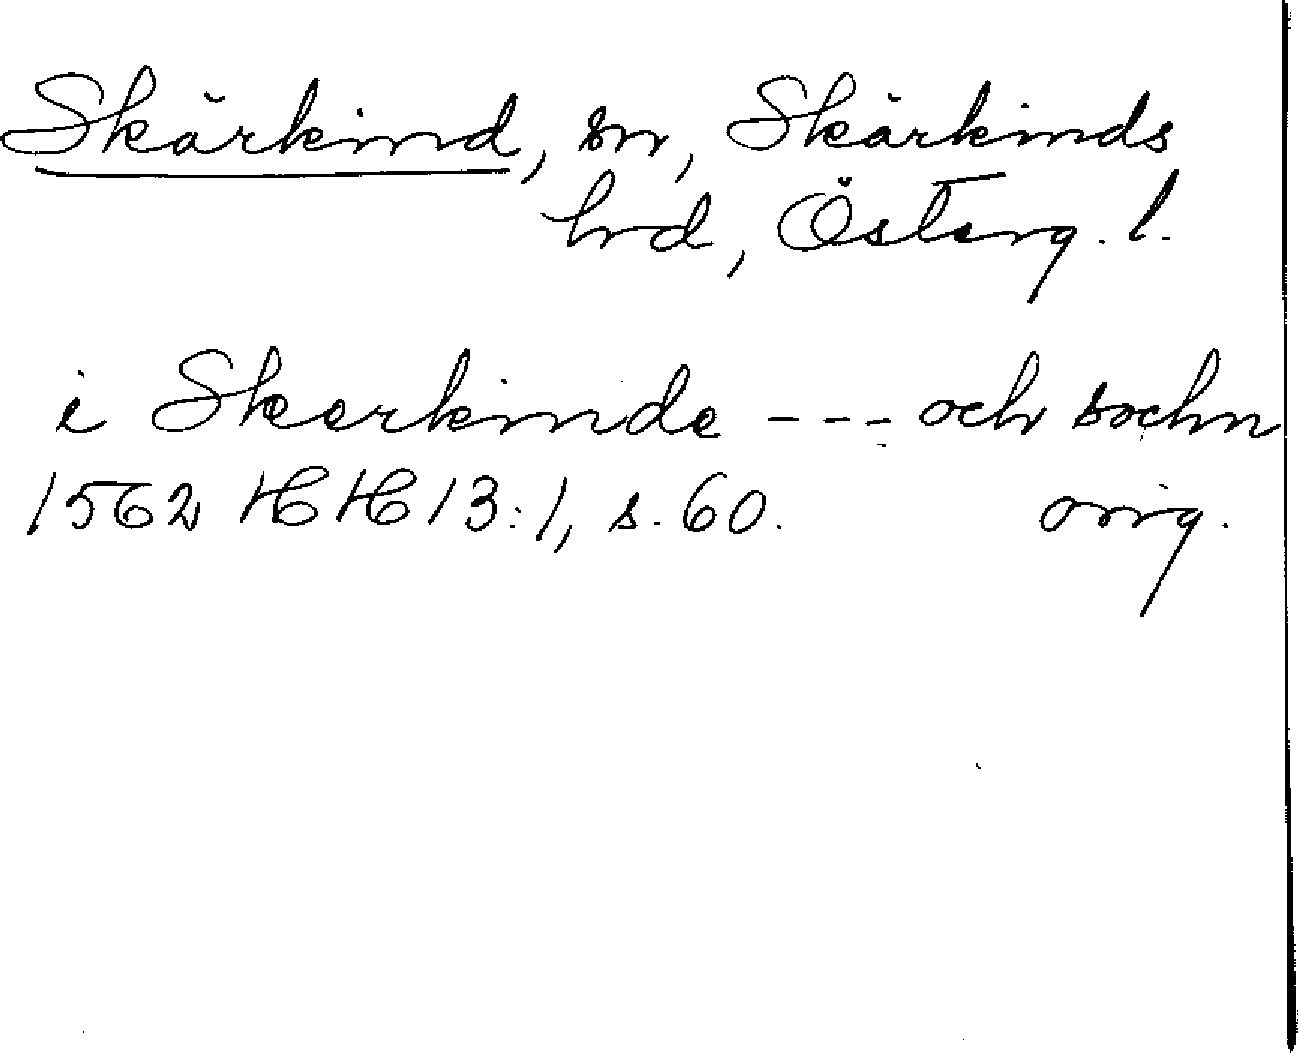 Skärkind, sn, Skärkinds
hrd, Österg. l.
i Skerkinde --- och sochn
1562 HH 13:1, s. 60. orig.